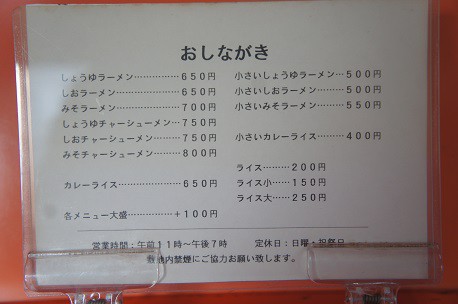 おしながき
しょうゆラーメン……………６５０円
しおラーメン…………………６５０円
みそラーメン…………………７００円
しょうゆチャーシューメン…７５０円
しおチャーシューメン………７５０円
みそチャーシューメン………８００円
カレーライス…………………６５０円
各メニュー大盛………………＋１００円
小さいしょうゆラーメン…５００円
小さいしおラーメン………５００円
小さいみそラーメン………５５０円
小さいカレーライス………４００円
ライス………２００円
ライス小……１５０円
ライス大……２５０円
営業時間：午前１１時〜午後７時　定休日：日曜・祝祭日
敷地内禁煙にご協力お願い致します。